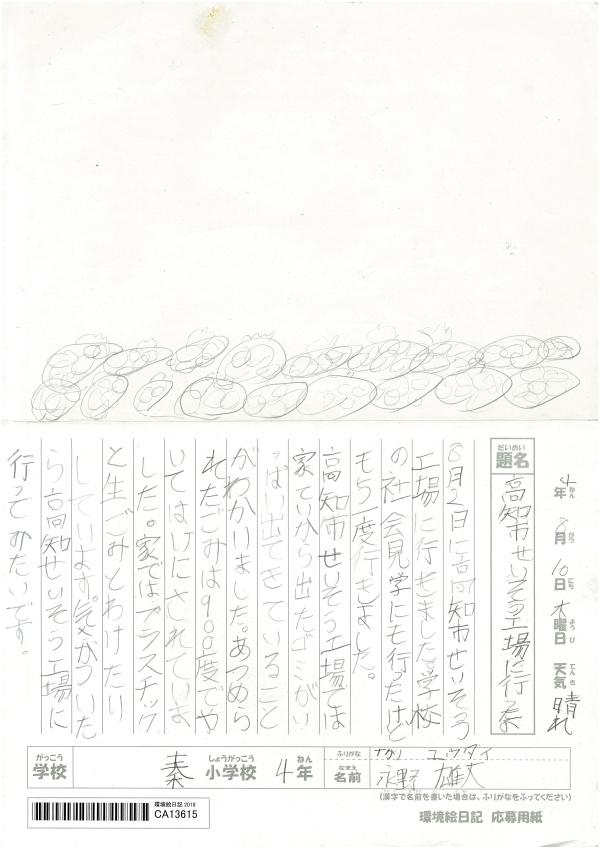 4年8月10日木曜日 天気晴れ
ねん がつ にち ようび てんき
だいめい
題名 高知市せいそう工場に行った
8月2日に高知市せいそう
工場に行きました。学校
の社会見学にも行ったけど
もう一度行きました。
高知市せいそう工場では
家ていから出たゴミがい
っぱい出てきていること
がわかりました。あつめら
れたごみは900度でや
いてはいにされていま
した。家ではプラスチック
と生ごみとわけたり
しています。気がついた
ら高知せいそう工場に
行ってみたいです。
がっこう しょうがっこう ねん
学校 秦小学校 4年
ふりがな ユウダイ
なまえ
名前 永野 雄大
(漢字で名前を書いた場合は、ふりがなをふってください)
環境絵日記 2018
CA13615
環境絵日記 応募用紙